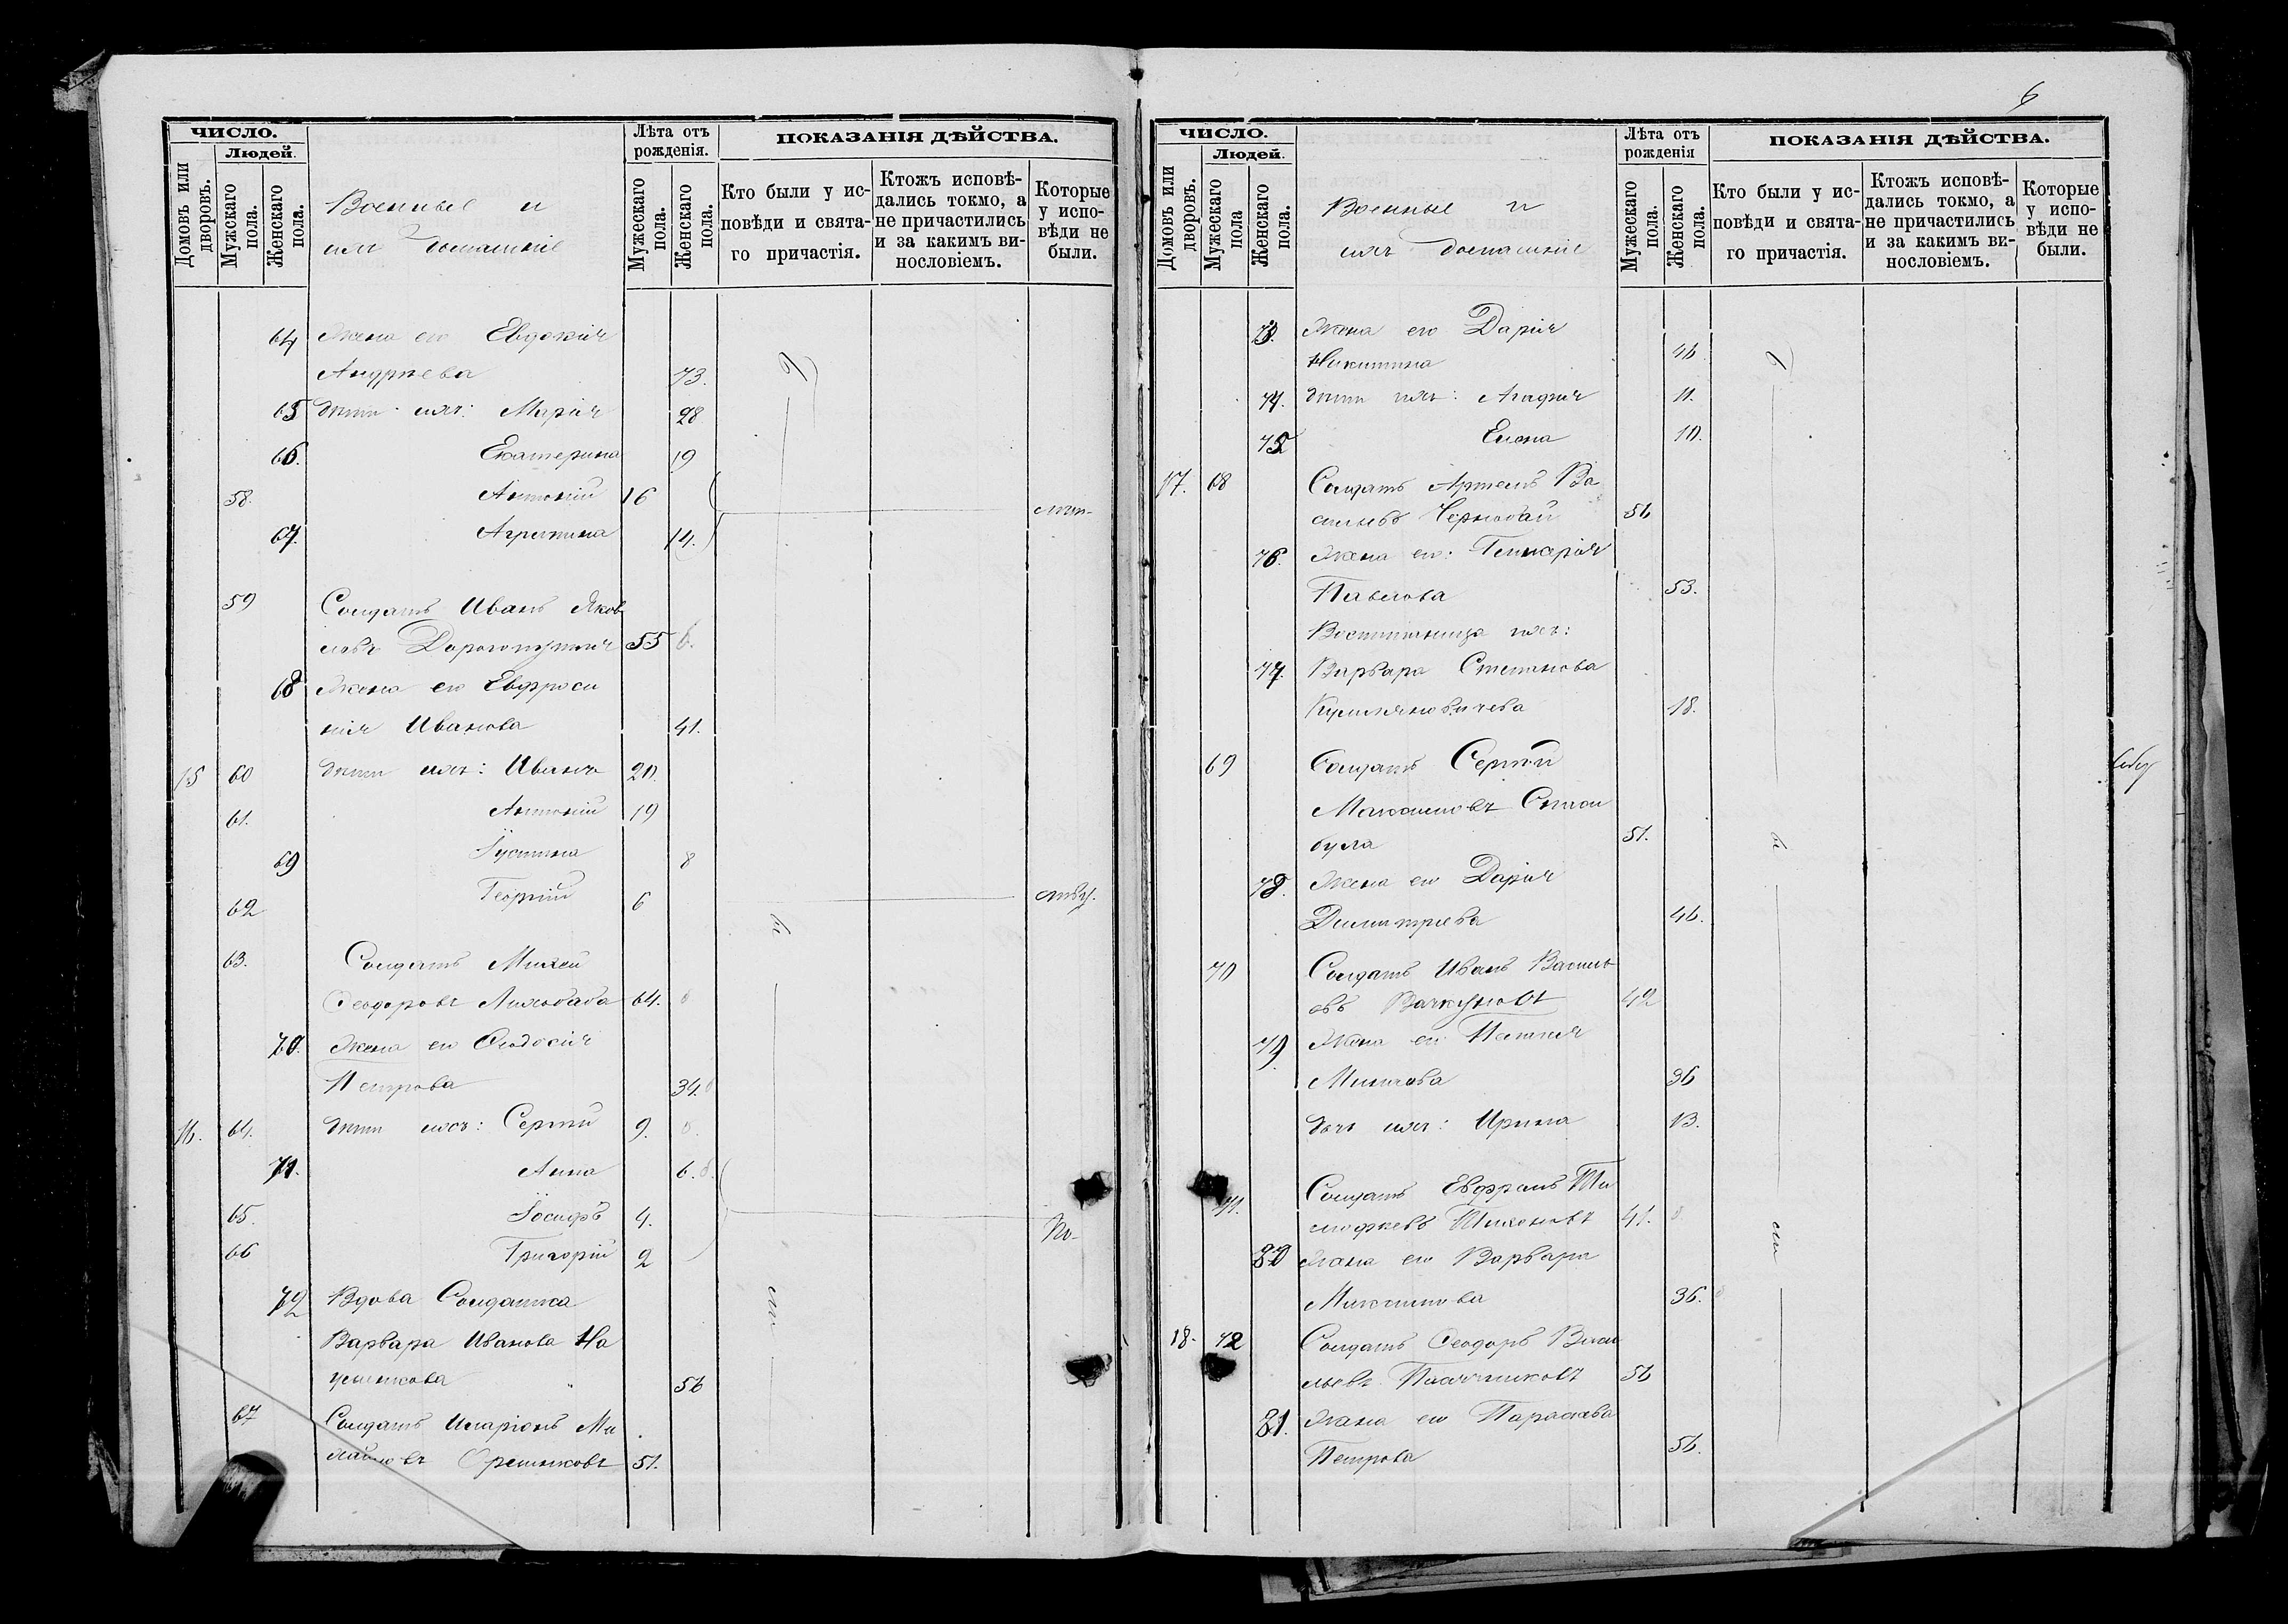 6
ЧИСЛО.
Людей.
Домовъ или дворовъ.
Мужскаго пола.
Женскаго пола.
Военные и
ихъ домашніе
Лѣта отъ рожденія.
Мужескаго пола.
Женскаго пола.
ПОКАЗАНІЯ ДѢЙСТВА.
Кто были у исповѣди и святаго причастія.
Ктожъ исповѣдались токмо, а не причастились и за какимъ винословіемъ.
Которые у исповѣди не были.
64 Жена его Евдокія
Андреева 73.
65 дѣти ихъ: Марія 28
66. Екатерина 19
58. Антоній 16
67. Агрипина 14.
59 Солдатъ Иванъ Яков
левъ 55
68 Жена его Евфроси
нія Иванова 41.
15 60 дѣти ихъ: Иванъ 20.
61. Антоній 19
69 Іустина 8
62 Георгій 6
63. Солдатъ Михей
Ѳеодоровъ Лихобаба 64.
70. Жена его Ѳеодосія
Петрова 34.
16. 64. дѣти ихъ: Сергій 9.
71. Анна 6.
65. Іосифъ 4.
66 Григорій 2
72 Вдова Солдатка
Варвара Иванова На
56
67 Солдатъ Иларіонъ Ми
хайловъ Орешковъ 51.
ЧИСЛО.
Людей.
Домовъ или дворовъ.
Мужескаго пола
Женскаго пола.
Военные и
ихъ домашніе
Лѣта отъ рожденія
Мужескаго пола.
Женскаго пола.
ПОКАЗАНІЯ ДѢЙСТВА.
Кто были у исповѣди и святаго причастія.
Ктожъ исповѣдались токмо, а не причастились и за какимъ винословіемъ.
Которые у исповѣди не были.
73. Жена его Дарія
Никитина 46.
74. дѣти ихъ: Агафія 11.
75 Елена 10.
17. 68 Солдатъ Артемъ Ва
сильевъ Чернобай 56
76. Жена его:
Павлова 53.
Воспитанница ихъ:
77. Варвара Степанова
18.
69 Солдатъ Сергій
Максимовъ
була 51.
78. Жена его Дарія
Димитріева 46.
70 Солдатъ Иванъ Василь
евъ 42
79 Жена его Пелагія
36
дочь ихъ: Ирина 13.
71. Солдатъ Ти
мофѣевъ Тихоновъ 41.
80 Жена его Варвара
Максимова 36.
18. 72 Солдатъ Ѳеодоръ Васи
льевъ 56
81. Жена его Параскева
Петрова 56.